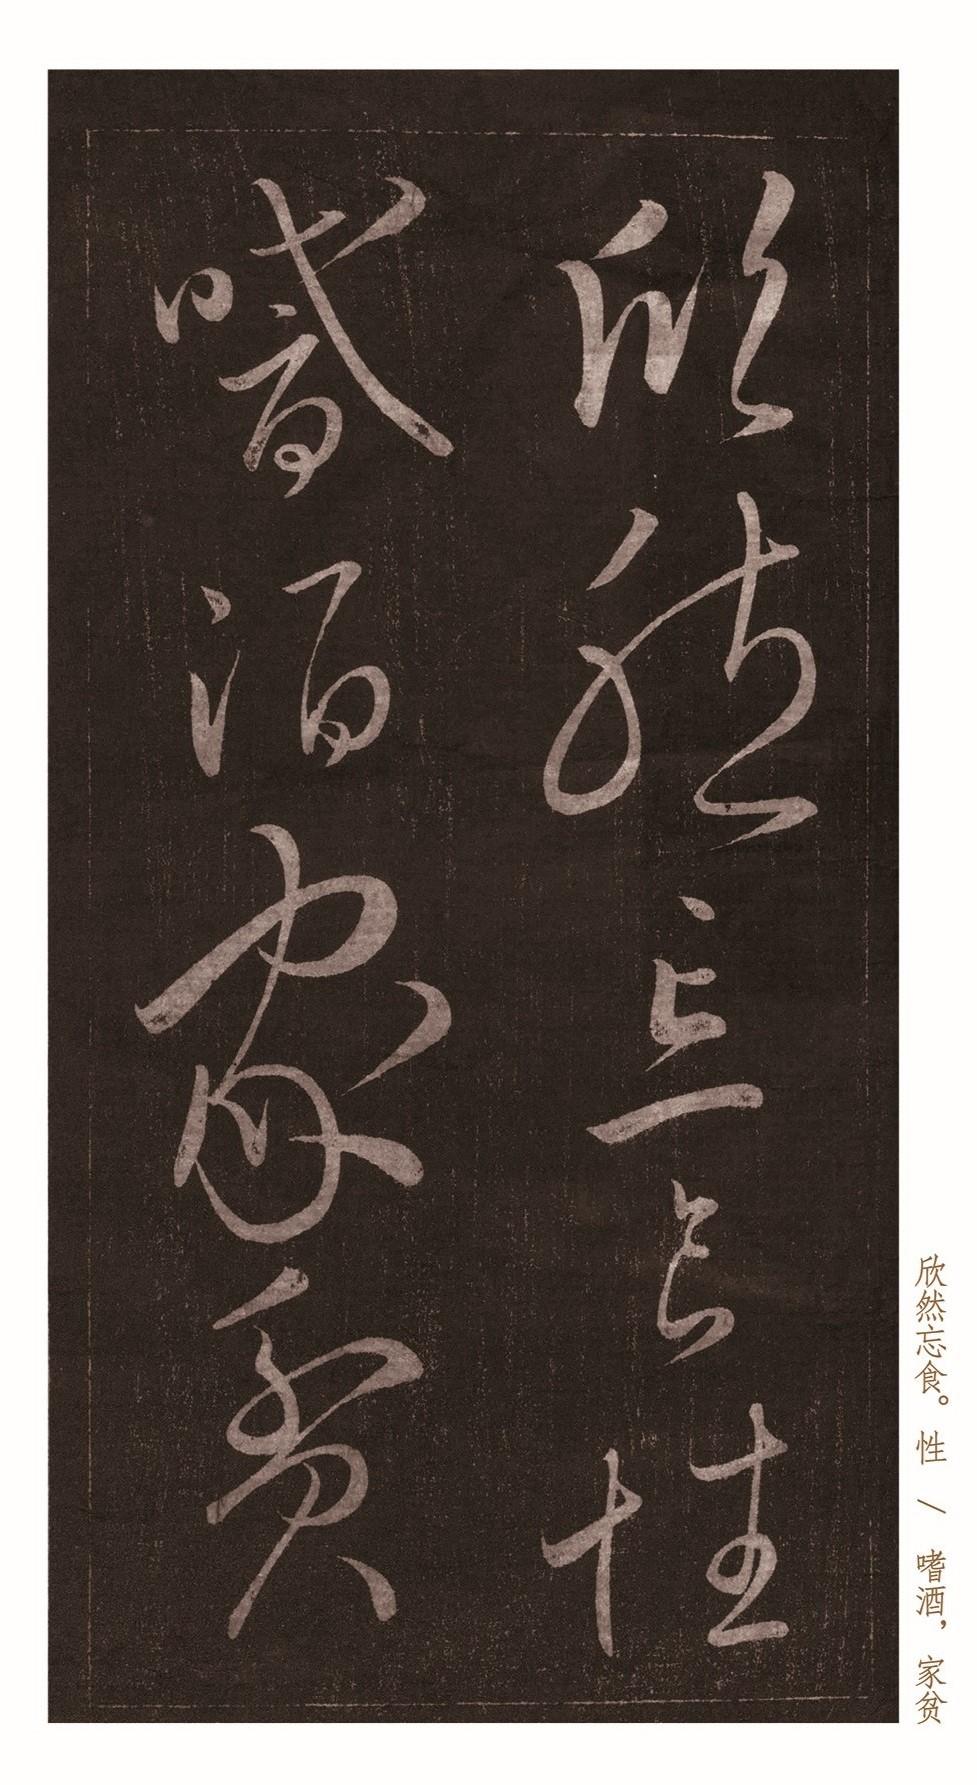 欣然忘食性
嗜酒家貧
欣然忘食。性 / 嗜酒，家贫